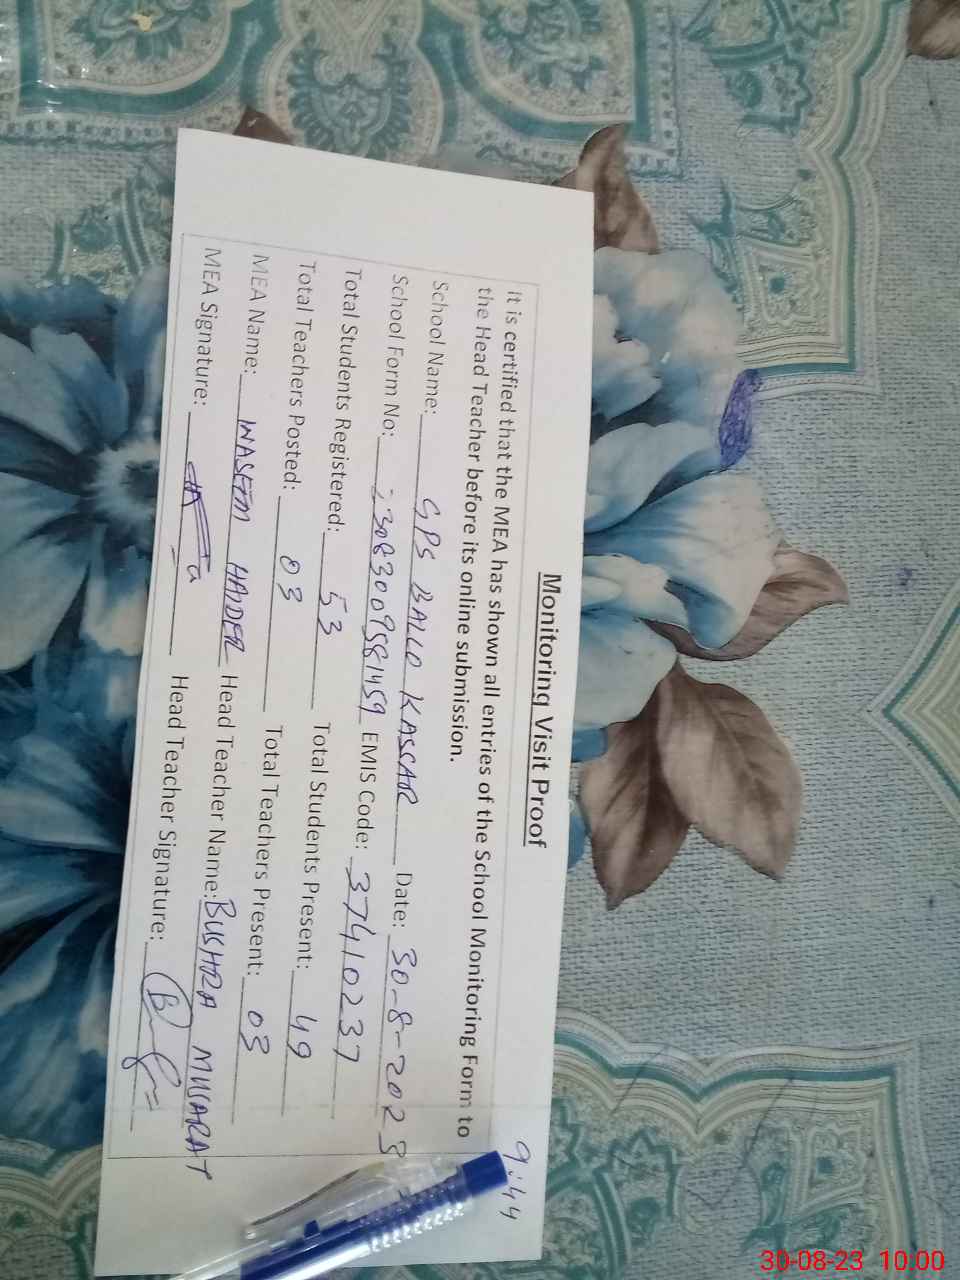 9:44
Monitoring Visit Proof
It is certified that the MEA has shown all entries of the School Monitoring Form to
the Head Teacher before its online submission.
School Name: GPS BALLO KASSAR Date: 30-8-2023
School Form No: 230830095581459 EMIS Code: 37410237
Total Students Registered: 53 Total Students Present: 49
Total Teachers Posted: 03 Total Teachers Present: 03
MEA Name: WASEEM HAIDER Head Teacher Name: BUSHRA MUSARAT
MEA Signature: Head Teacher Signature:
30-08-23 10:00